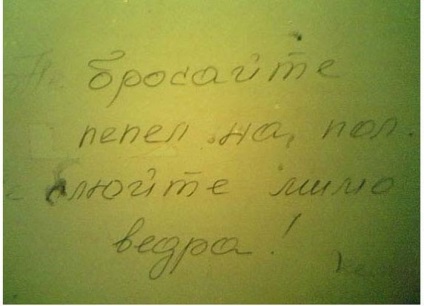 бросайте
пепел на пол.
плюйте мимо
ведра!